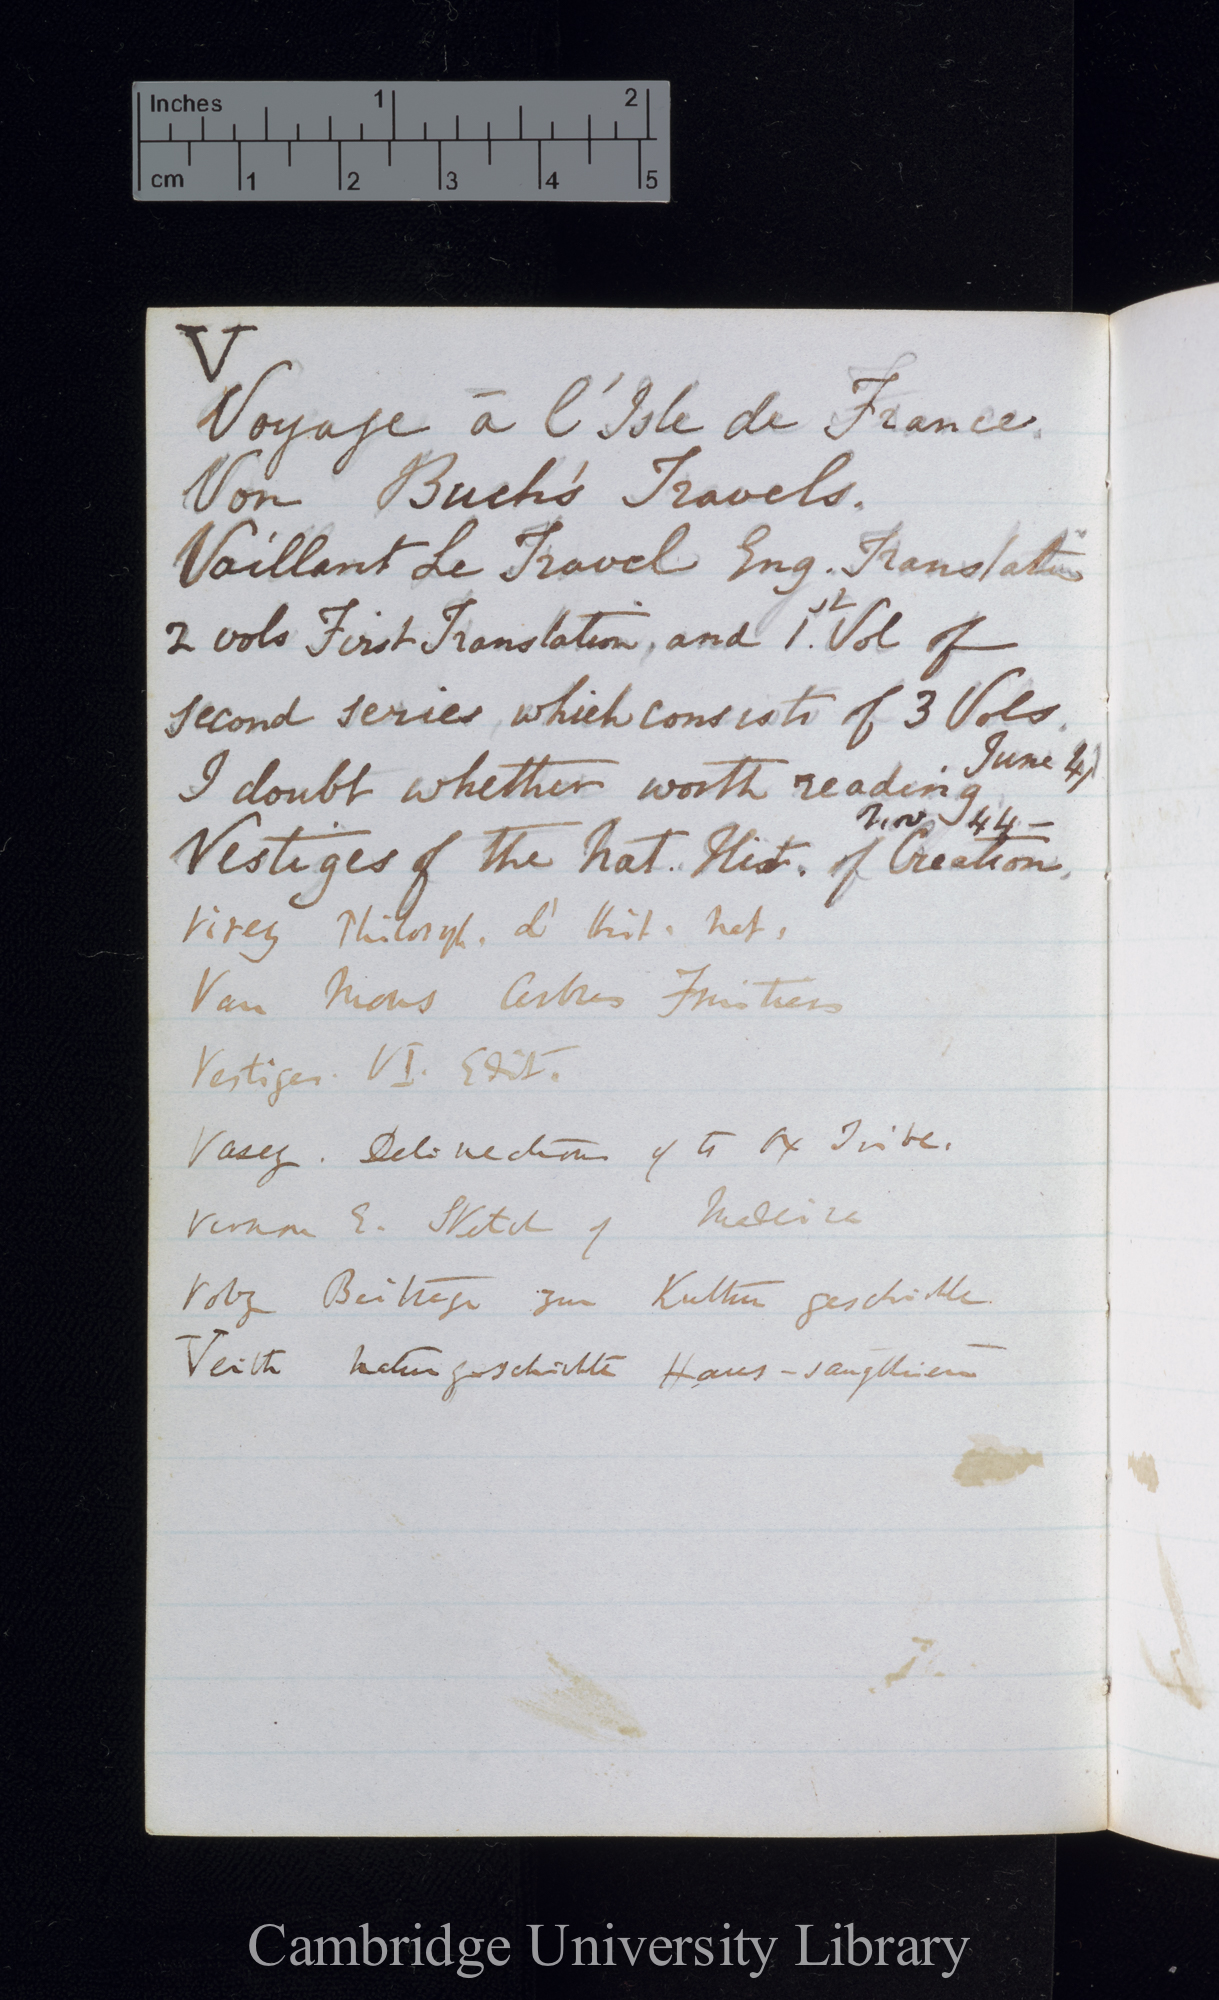 Inches 1 2
cm 1 2 3 4 5
V
Voyage à l'Isle de France.
Von Buch's Travels.
Vaillant Le Travel Eng. Translation
2 vols First Translation, and 1.st Vol of
second series which consists of 3 Vols.
I doubt whether worth reading June 4/
Nov. 44 —
Vestiges of the Nat. Hist. of Creation.
Virey Philosoph. d' Hist. Nat.
Van Mons Arbres Fruitiers
Vestiges. VI. Edit.
Vasey. Delineations of the Ox Tribe.
Vernon E. Sketch of Madeira
Volz Beiträge zur Kultur geschichte
Veith Naturgeschichte Haus-saugthiere
Cambridge University Library